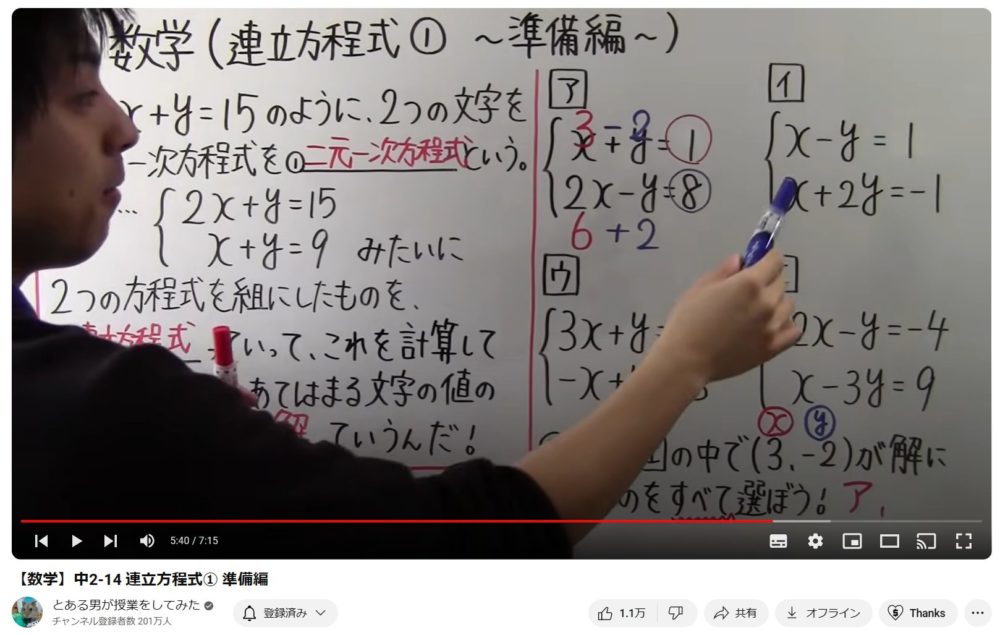 数学(連立方程式① ~準備編~)
x+y=15のように、2つの文字を
一次方程式を①二元一次方程式という。
… 2x+y=15
x+y=9 みたいに
2つの方程式を組にしたものを、
方程式 っていって、これを計算して
あてはまる文字の値の
解 っていうんだ!
ア
x+y=1
3 -2
2x-y=8
6+2
イ
x-y=1
x+2y=-1
ウ
3x+y=
-x+
2x-y=-4
x-3y=9
x y
の中で(3,-2)が解に
のをすべて選ぼう! ア,
5:40 / 7:15
【数学】中2-14 連立方程式① 準備編
とある男が授業をしてみた
チャンネル登録者数 201万人
登録済み
1.1万
共有
オフライン
Thanks